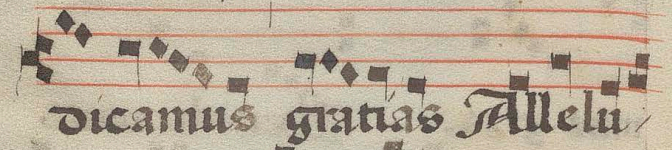 dicamus gratias Allelu